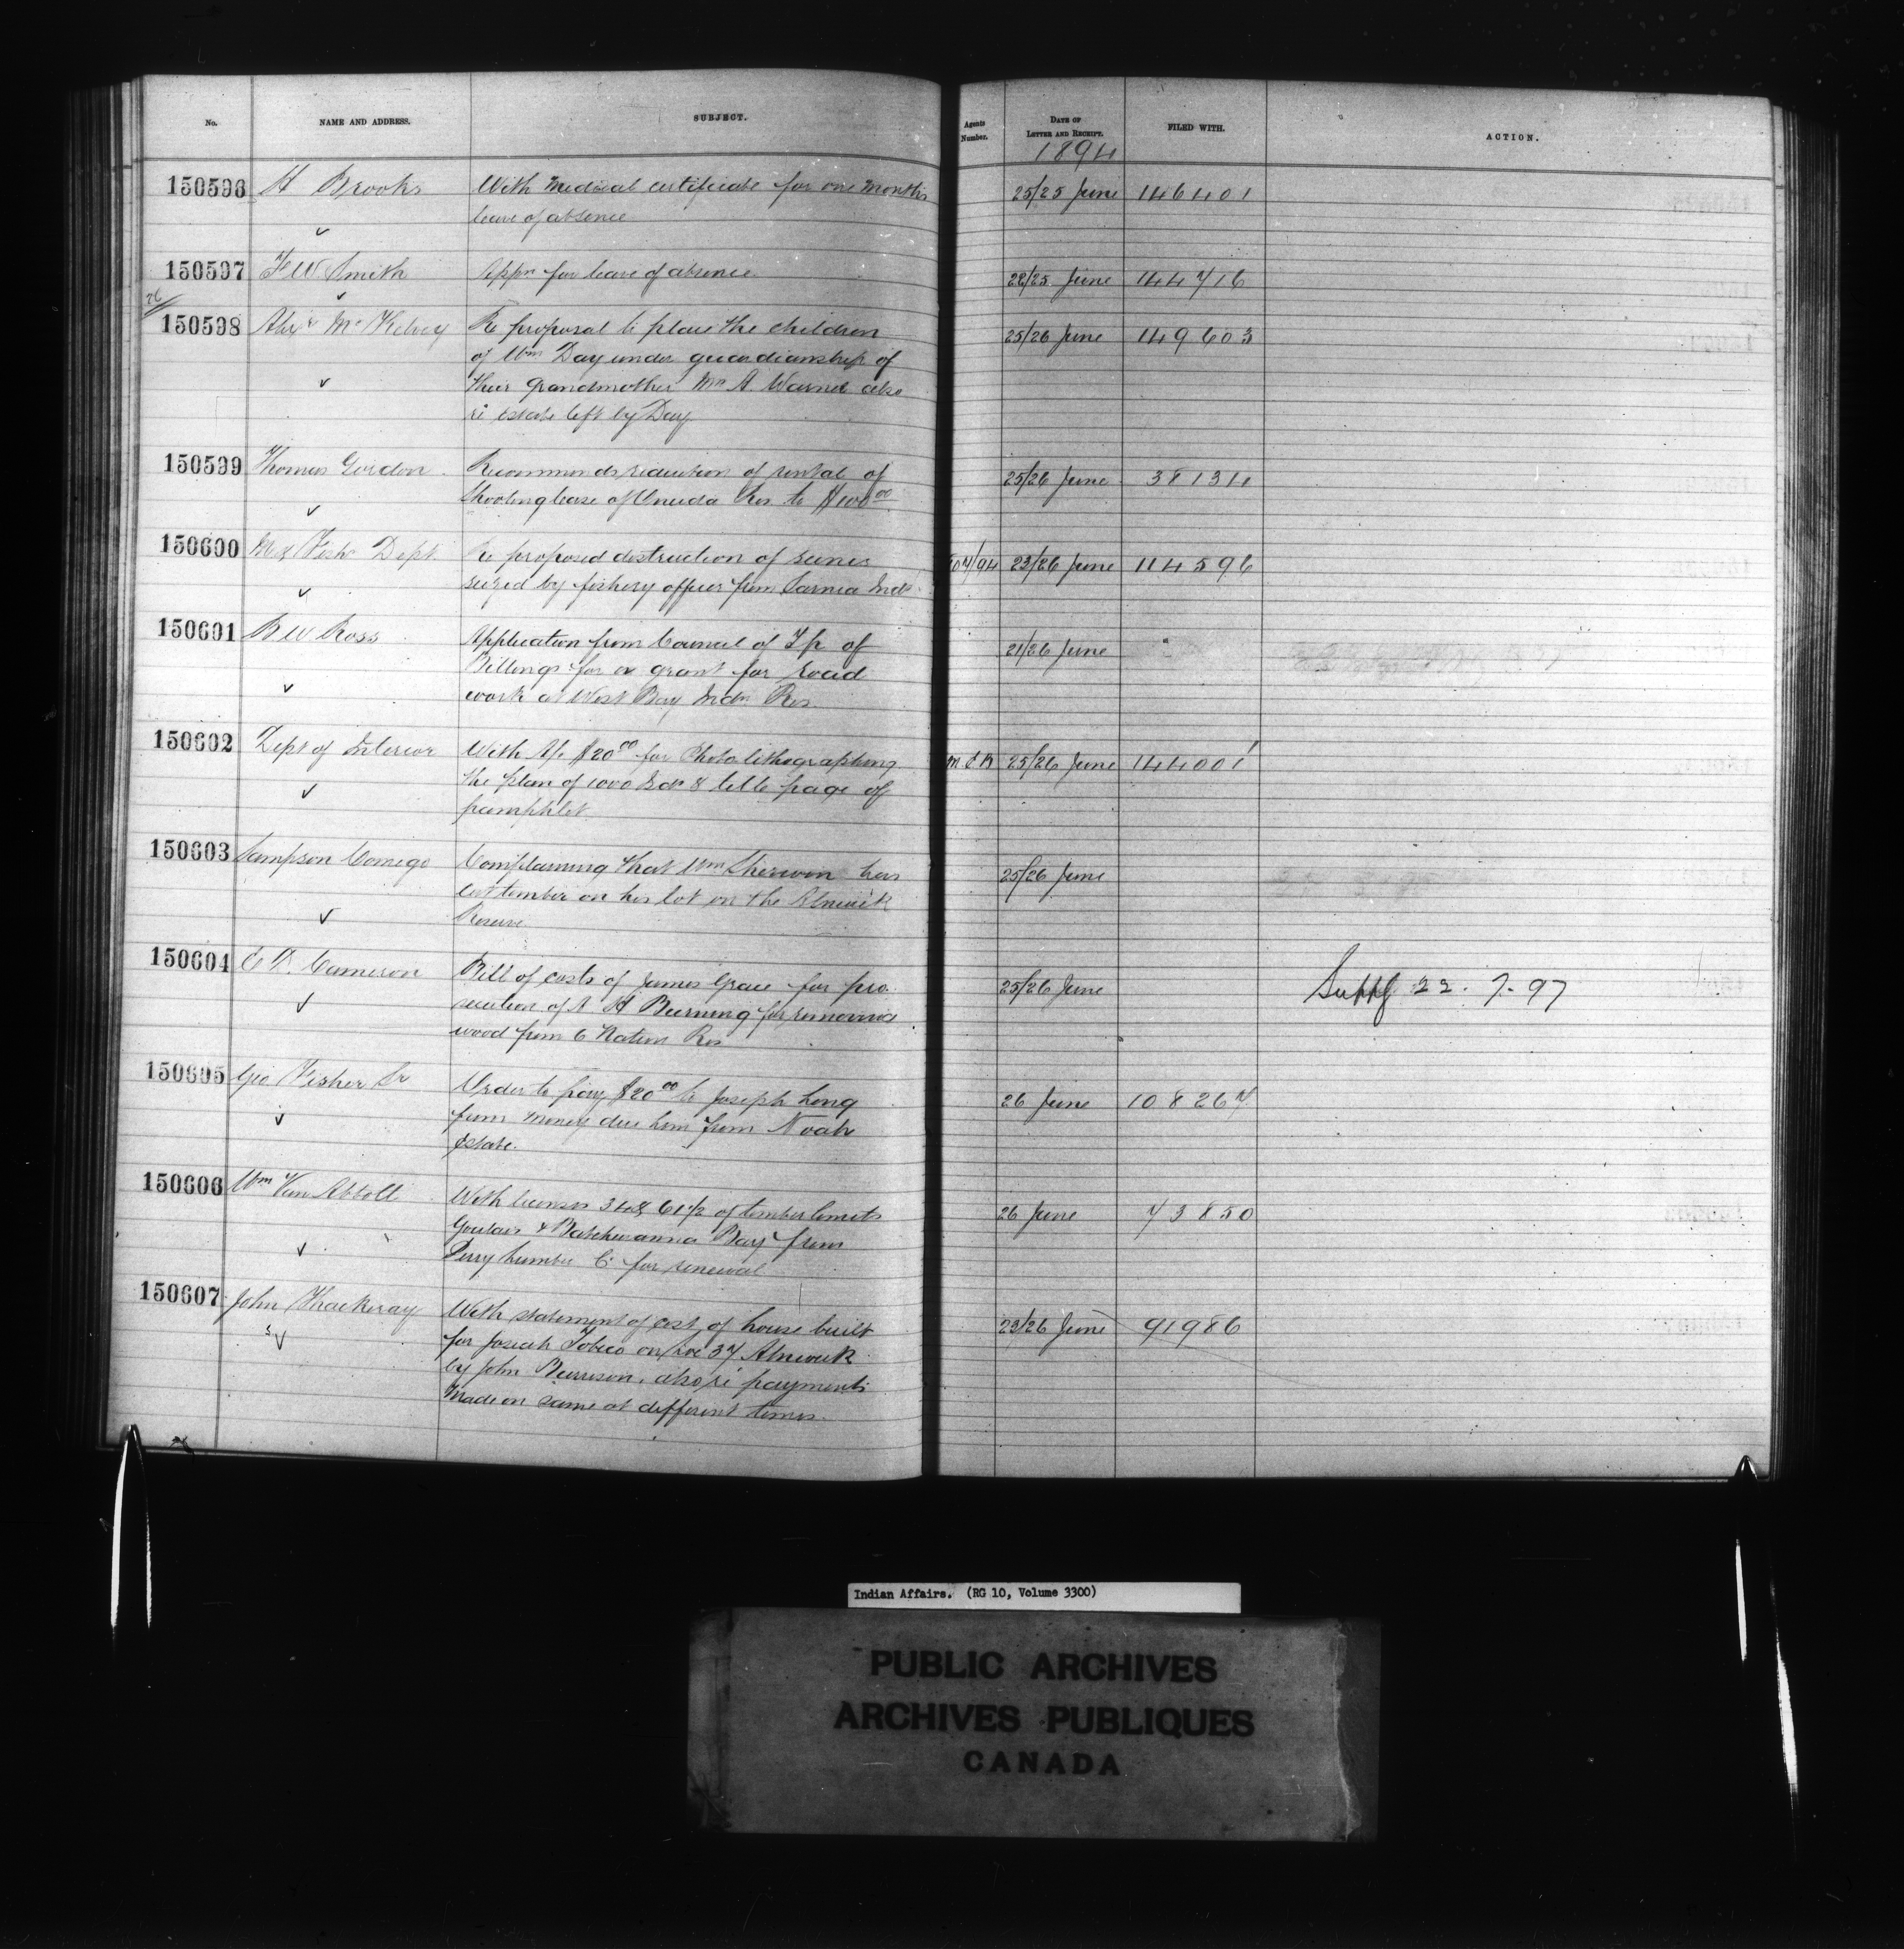 No. NAME AND ADDRESS. SUBJECT. Agents Number. DATE OF LETTER AND RECEIPT. FILED WITH. ACTION.
1894
150596 H Brooks With Medical certificate for one months 25/25 June 146401
leave of absence
150597 F W Smith Appn for leave of absence 22/25 June 144716
26
150598 Alexr McKelvey Re proposal to place the children 25/26 June 149603
of Wm Day under guardianship of
their grandmother Mrs A. Warner also
re estate left by Day
150599 Thomas Gordon Recommends reduction of rental of 25/26 June 38134
Shooting lease of Oneida Res. to $100 00
150600 M & Fish Dept Re proposed destruction of seines 23/26 June 114596
seized by fishery officer from Sarnia Inds
150601 B W Ross Application from Council of Tp of 21/26 June
Billings for a grant for road
work at West Bay Indn Res.
150602 Dept of Interior With A/c $20 00 for Photo lithographing 25/26 June 144001
the plan of 1000 Ids & title page of
pamphlet
150603 Sampson Comego Complaining that Wm Sherwon has 25/26 June
cut timber on his lot on the Alnwick
Reserve
150604 E D. Cameron Bill of costs of James Grace for pro- 25/26 June 22. 7. 97
secution of A H Burning for removing
wood from 6 Nation Res
150605 Geo Fisher Sr Order to pay $20 00 to Joseph Long 26 June 108267
from money due him from Noah
Estate.
150606 Wm Van Abbott With licenses of timber limits 26 June 73850
Goulais & Batchewanna Bay from
Perry Lumber Co for renewal
150607 John Thackeray With statement of cost of house built 23/26 June 91986
for Josiah Tobico on Lot 37 Alnwick
by John Burrison, also re payments
made on same at different times.
Indian Affairs. (RG 10, Volume 3300)
PUBLIC ARCHIVES
ARCHIVES PUBLIQUES
CANADA